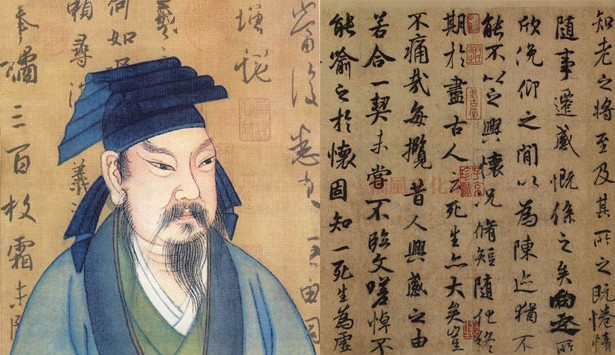 知老之將至及其所之既惓情
隨事遷感慨係之矣向之所
欣俛仰之間以為陳迹猶不
能不以之興懷況脩短隨化終
期於盡古人云死生亦大矣豈
不痛哉每攬昔人興感之由
若合一契未嘗不臨文嗟悼不
能喻之於懷固知一死生為虛
羲
何如
奉橘三百枚霜未